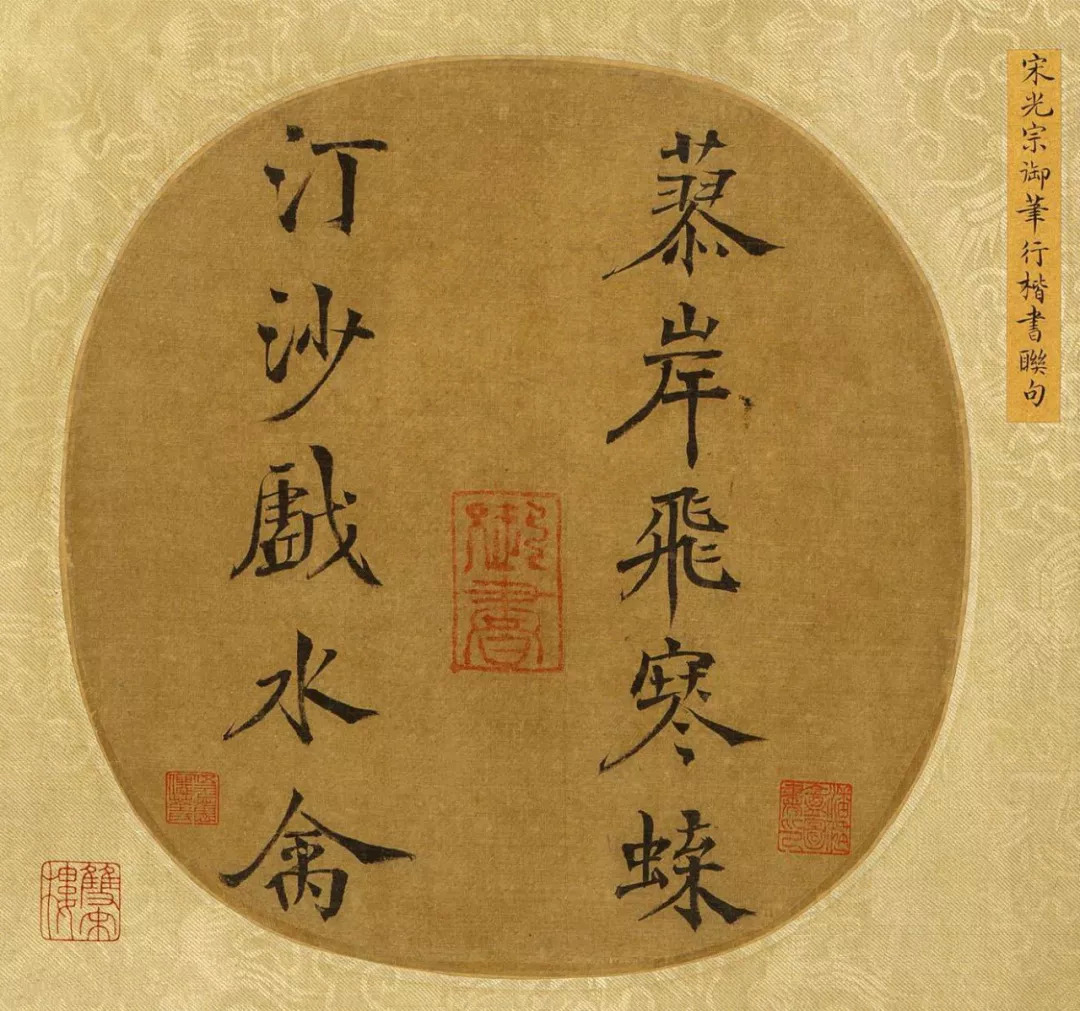 宋光宗御筆行楷書聯句
蓼岸飛寒蝶
御書
汀沙戲水禽
雙宋樓